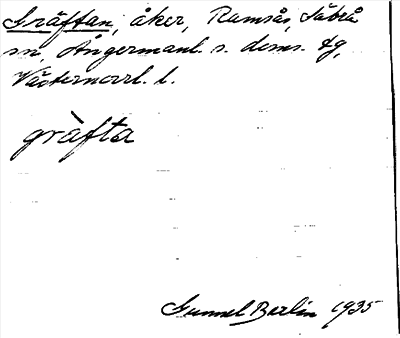 Gräftan, åker, Ramsås, Säbrå
sn, Ångermanl. s. doms. tg,
Västernorrl. l.
gràfta
Gunnel Berlin 1935